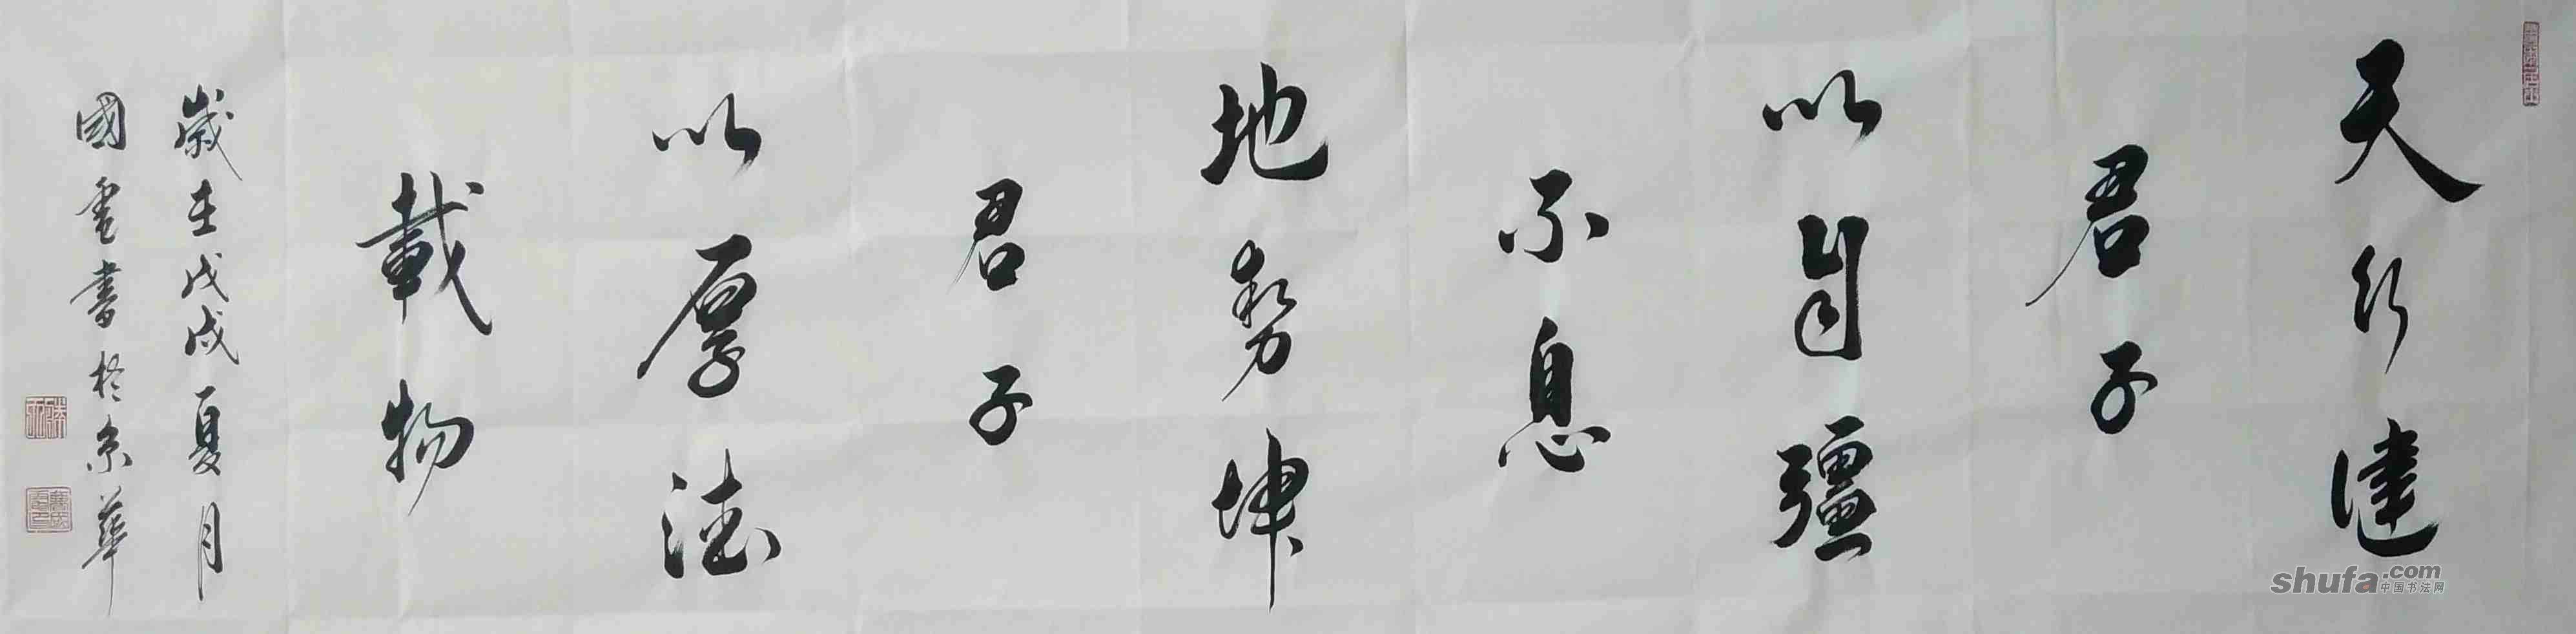 天行健
君子
以自彊
不息
地势坤
君子
以厚德
載物
歲在戊戌夏月
國書於京華
shufa.com
中国书法网